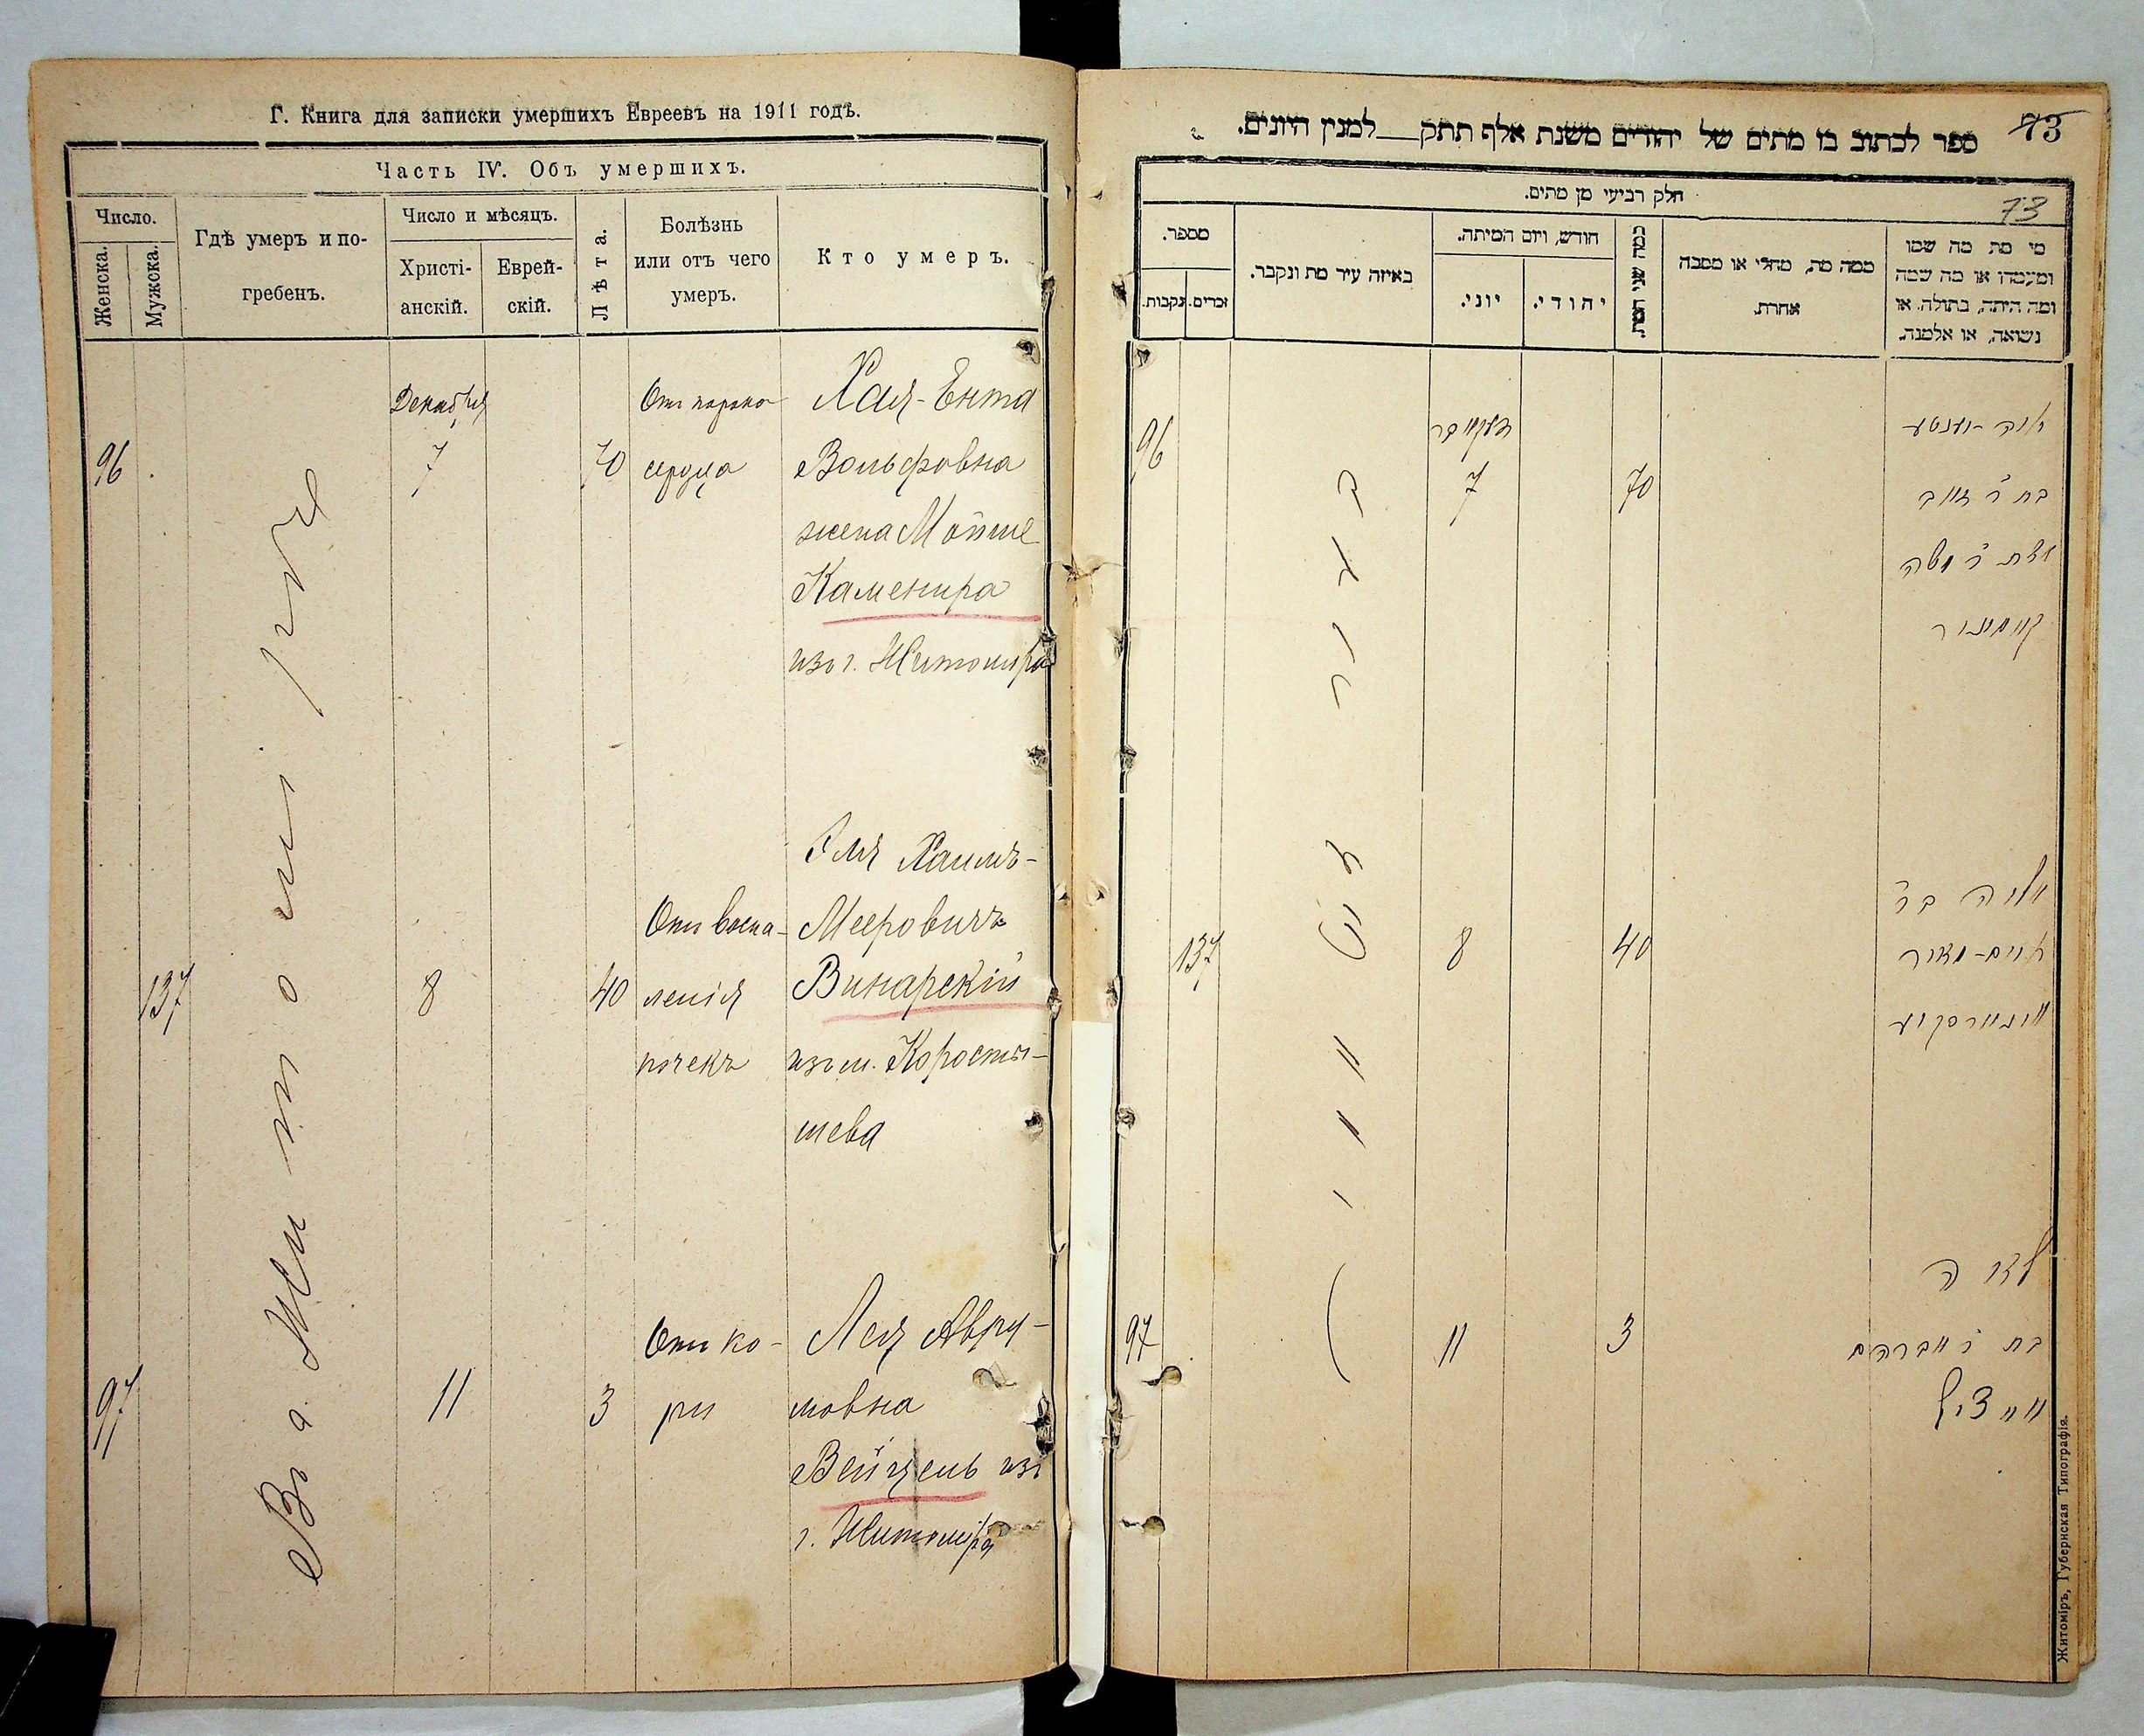 Г. Книга для записки умершихъ Евреевъ на 1911 годъ.
Часть IV. Объ умершихъ.
Число.
Женска.
Мужска.
Гдѣ умеръ и по-
гребенъ.
Число и мѣсяцъ.
Христі-
анскій.
Еврей-
скій.
Лѣта.
Болѣзнь
или отъ чего
умеръ.
Кто умеръ.
Въ г. Житомірѣ
96
Декабря
7
70
Отъ порока
сердца
Хая-Ента
Вольфовна
жена Мойше
Каменира
изъ г. Житомира
137
8
40
Отъ воспа-
ленія
почекъ
Эля Хаимъ-
Мееровичъ
Винарскій
изъ м. Коросты-
шева
97
11
3
Отъ ко-
ри
Лея Авру-
мовна
Вейцель изъ
г. Житоміра
73
ספר לכתוב בו מתים של יהודים משנת אלף תתק למנין היונים.
חלק רביעי מן מתים.
73
מספר.
נקבות.
זכרים.
באיזה עיר מת ונקבר.
חודש, ויום המיתה.
יוני.
יהודי.
כמה שני המת.
ממה מת, מחלי או מסבה
אחרת.
מי מת מה שמו
ומעמדו או מה שמה
ומה היתה, בתולה. או
נשואה, או אלמנה.
96
דעקאבר
7
70
חיה-יענטע
בת ר' זאב
אשת ר' משה
קאמיניר
137
8
40
אליה בר'
חיים-מאיר
ווינארסקיע
97
11
3
לאה
בת ר' אברהם
ווייציל
Житоміръ, Губернская Типографія.